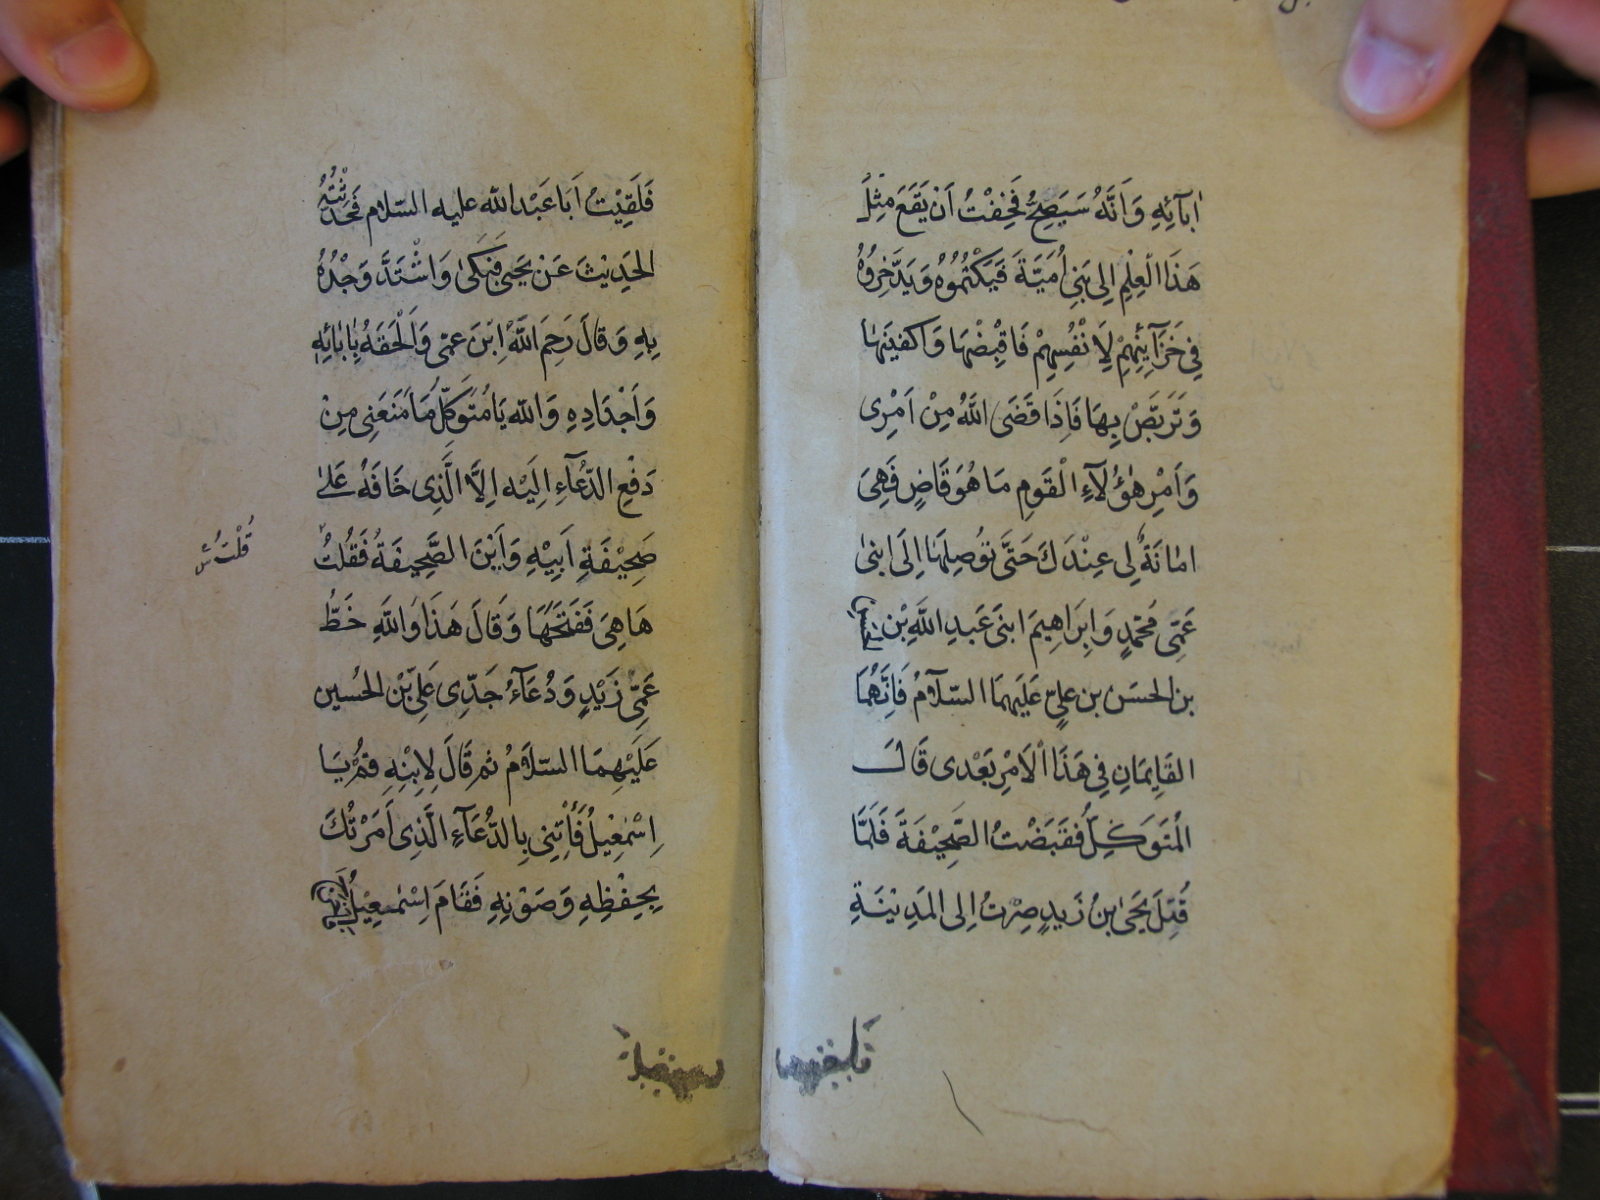 اٰبَآئِهِ وَاَنَّهُ سَيَصِحُّ فَخِفْتُ اَنْ يَقَعَ مِثْلُ
هَذَا الْعِلْمِ اِلى بَنِى اُمَيَّةَ فَيَكْتُمُوْهُ وَيَدَّخِرُوْهُ
فِى خَزَآئِنِهِمْ لِاَنْفُسِهِمْ فَاقْبِضْهَا وَاكفِنِيْهَا
وَتَرَبَّصْ بِهَا فَاِذَا قَضَى اللَّهُ مِنْ اَمْرِى
وَاَمْرِ هٰؤُلآءِ الْقَومِ مَا هُوَ قَاضٍ فَهِىَ
امٰانَةٌ لِى عِنْدَكَ حَتَّى تُوْصِلَهَا اِلَى ابنَى
عَمِّى مُحَمَّدٍ وَاِبرَاهِيمَ ابنَى عَبدِ اللَّهِ بْنِ
بن الحسَن بن علىٍّ عَلَيهِمَا السّلَامُ فَاِنَّهُمَا
القَائِمَانِ فِى هَذَا الْاَمْرِ بَعْدى قَالَ
المُتَوَكِّلُ فَقَبَضْتُ الصَّحِيْفَةَ فَلَمَّا
قُتِلَ يَحيَى ابنُ زَيدٍ صِرْتُ اِلى المَدِيْنَةِ
فلقيت
فَلَقِيْتُ اَبَا عَبْد الله عليه السّلام فَحَدَّثْتُهُ
الحَدِيْثَ عَنْ يَحيى فَبَكىٰ وَاشْتَدَّ وَجْدُهُ
بِهِ وَقَالَ رَحِمَ اللَّهُ ابْنَ عمّى وَاَلْحَقَهُ بِاٰبَائِهِ
وَاَجْدَادِهِ وَالله يَا مُتَوَكِّلُ مَا مَنَعَنِى مِنْ
دَفْعِ الدُّعَآءِ اِلَيْهِ اِلَّا الَّذِى خَافَهُ عَلىٰ
صَحِيْفَةِ اَبِيْهِ وَاَيْنَ الصَّحِيفَةُ فَقُلتُ
قُلْتُ
هَا هِىَ فَفَتَحَهَا وَقَالَ هَذَا وَاللَّهِ خَطُّ
عَمِّى زَيْدٍ وَدُعَآءُ جَدِّى عَلِىّ بْنِ الحُسَين
عَلَيْهِمَا السّلَامُ ثم قَالَ لِابْنِهِ قُمْ يَا
اِسْمٰعِيْلُ فَأْتِنِى بِالدُّعَآءِ الَّذِى اَمَرْتُكَ
بِحِفْظِهِ وَصَوْنِهِ فَقَامَ اِسْمٰعِيْلُ